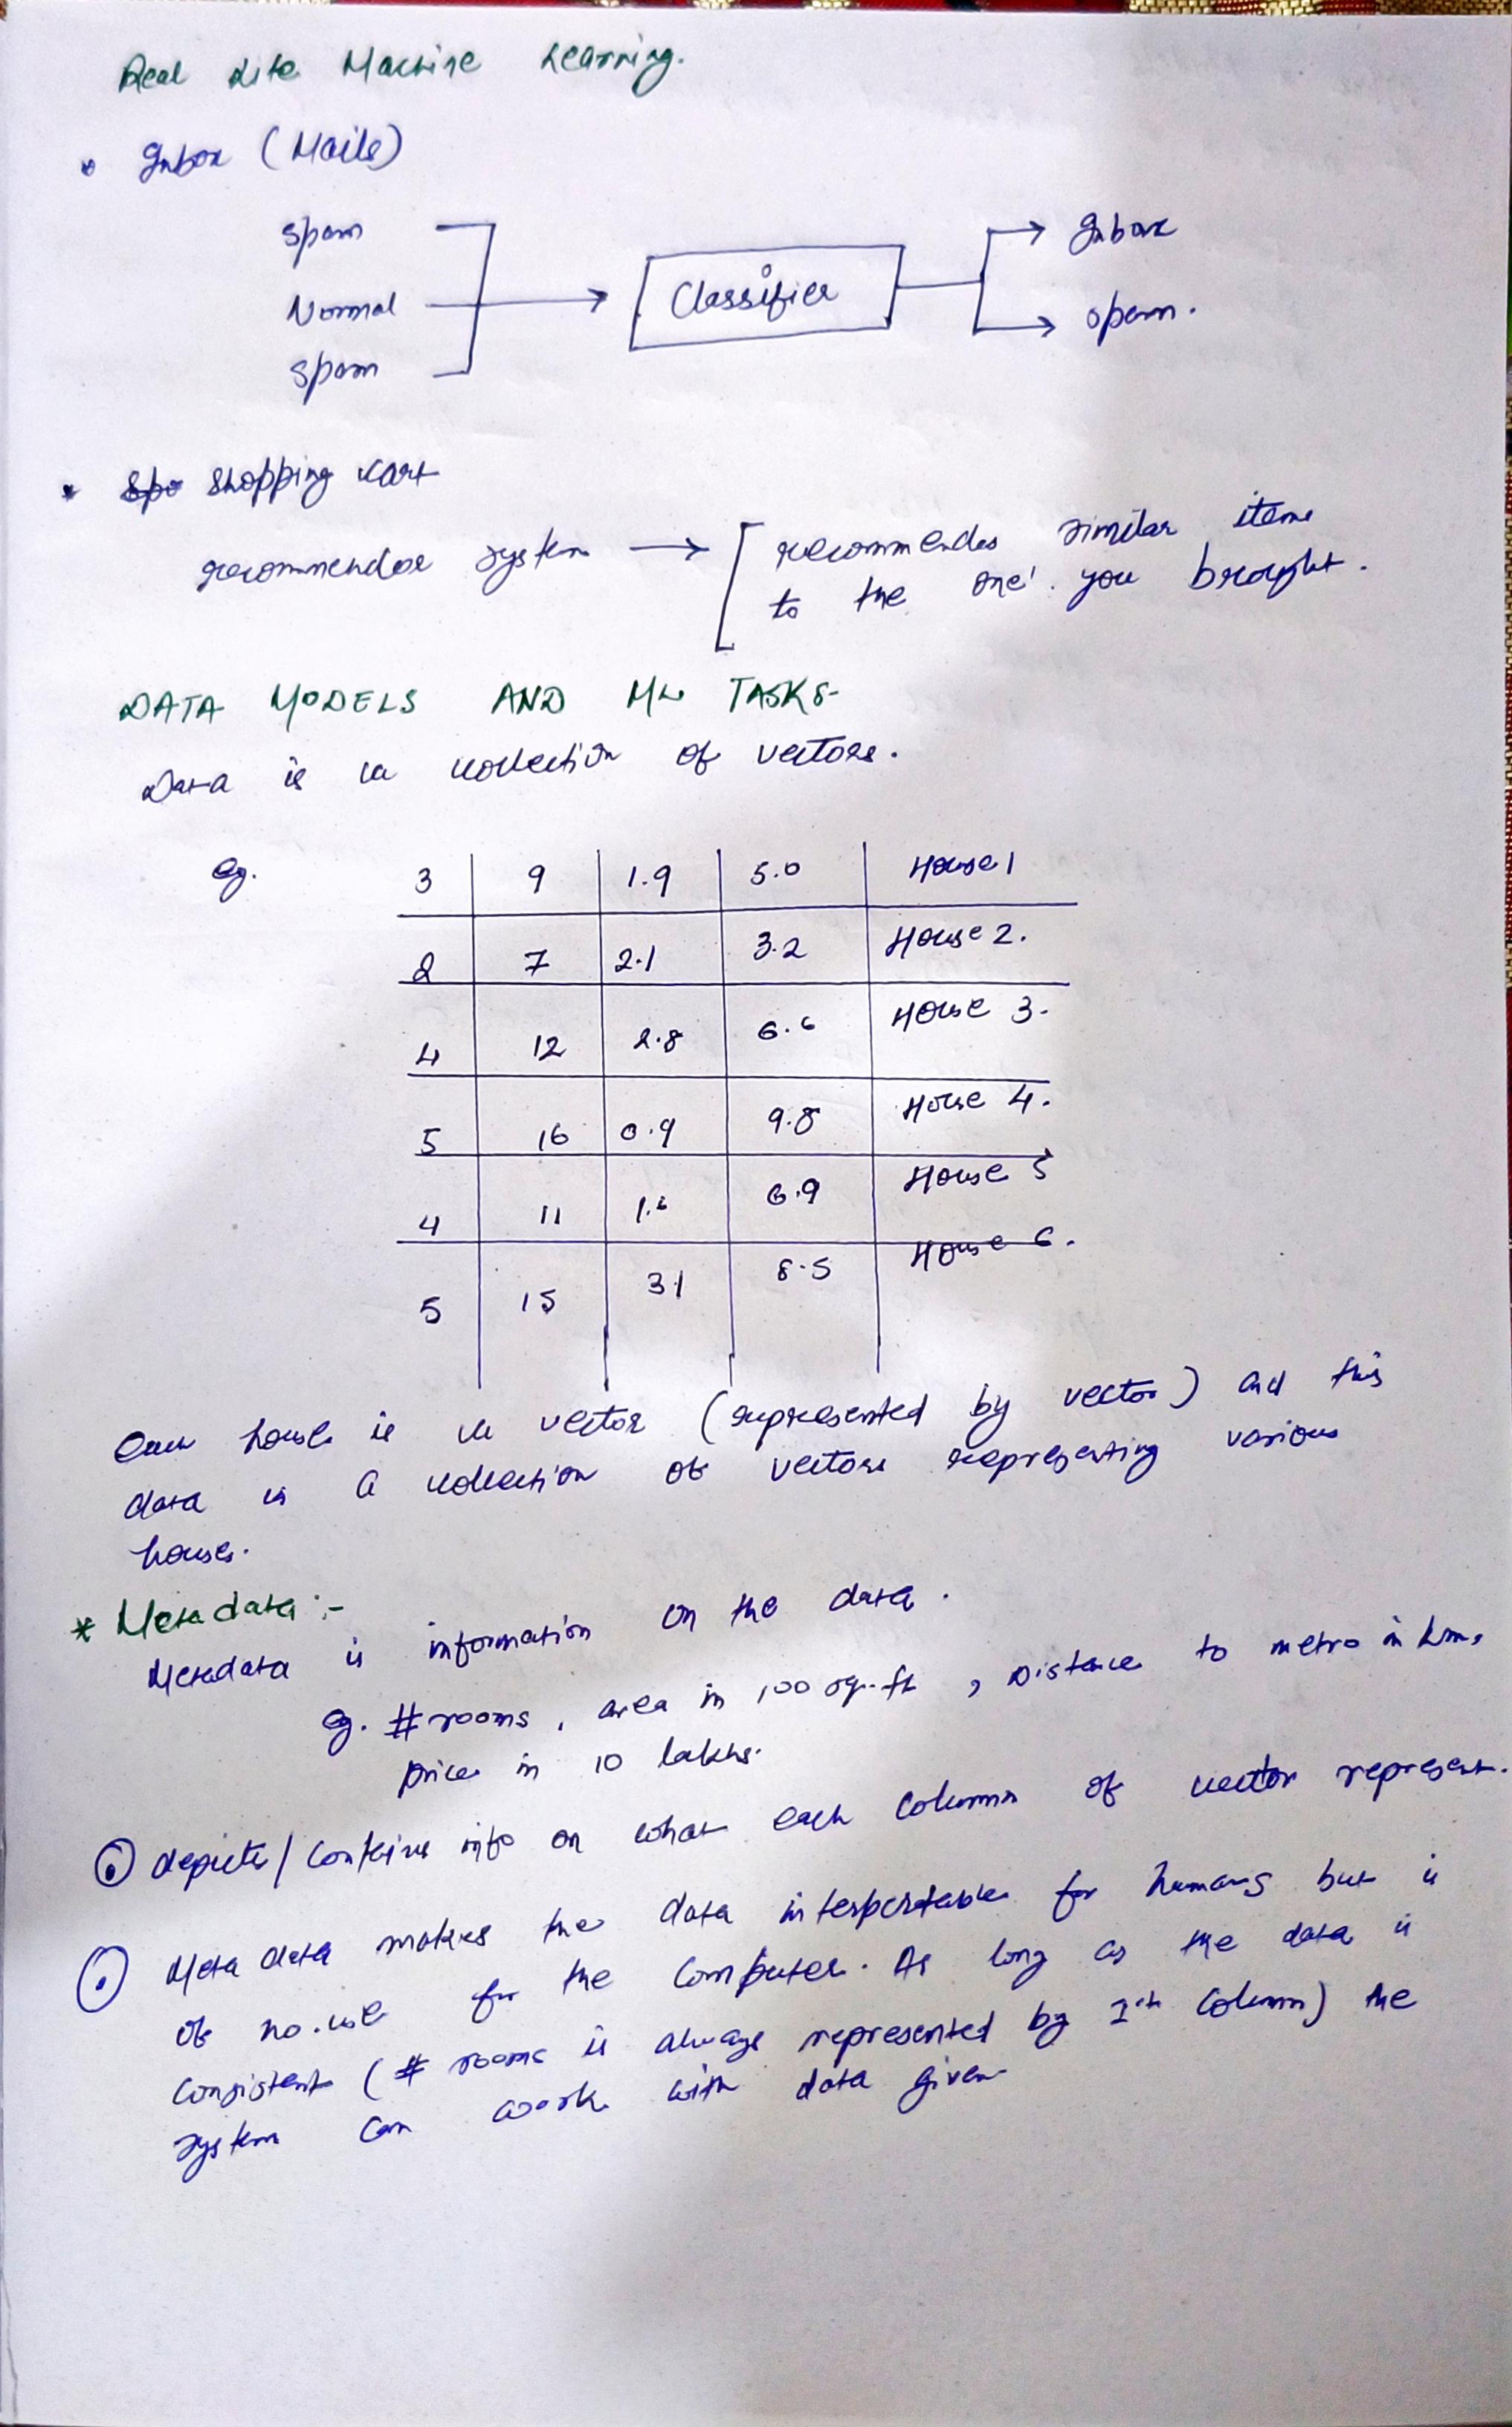 Real Life Machine Learning.
* Inbox (Mails)
spam
Normal
spam
Classifier
Inbox
spam.
* Spo Shopping kart
recommendor system → recommendes similar items
to the one' you brought.
DATA MODELS AND ML TASKS-
Data is a collection of vectors.
eg.
3 9 1.9 5.0 House 1
2 7 2.1 3.2 House 2.
4 12 2.8 6.6 House 3.
5 16 0.9 9.8 House 4.
4 11 1.6 6.9 House 5
5 15 3.1 8.5 House 6.
Each house is a vector (represented by vector) and this
data is a collection of vectors representing various
houses.
* Metadata :-
Metadata is information on the data.
eg. #rooms, area in 100 sq.ft, Distance to metro in km,
price in 10 lakhs.
depicts/contains info on what each column of vector represent.
Meta data makes the data interpretable for humans but is
of no.use for the computer. As long as the data is
consistent (# rooms is always represented by 1st column) the
system can work with data given